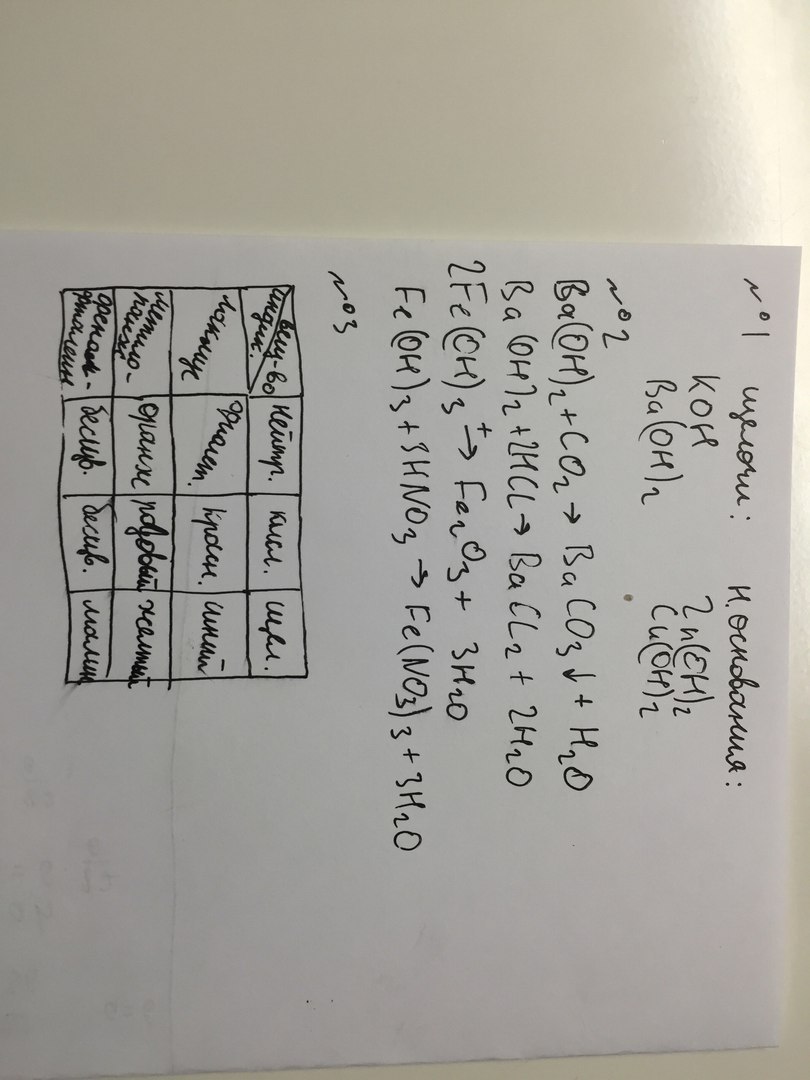 №1 Щелочи: Н.основания:
KOH Zn(OH)2
Ba(OH)2 Cu(OH)2
№2
Ba(OH)2+CO2→BaCO3↓+H2O
Ba(OH)2+2HCl→BaCl2+2H2O
2Fe(OH)3 t→ Fe2O3+3H2O
Fe(OH)3+3HNO3→Fe(NO3)3+3H2O
№3
вещ-во индик. нейтр. кисл. щел.
лакмус фиолет. красн. синий
метило- оранж розовый желтый
фенол- бесцв. бесцв. малин
фталеин